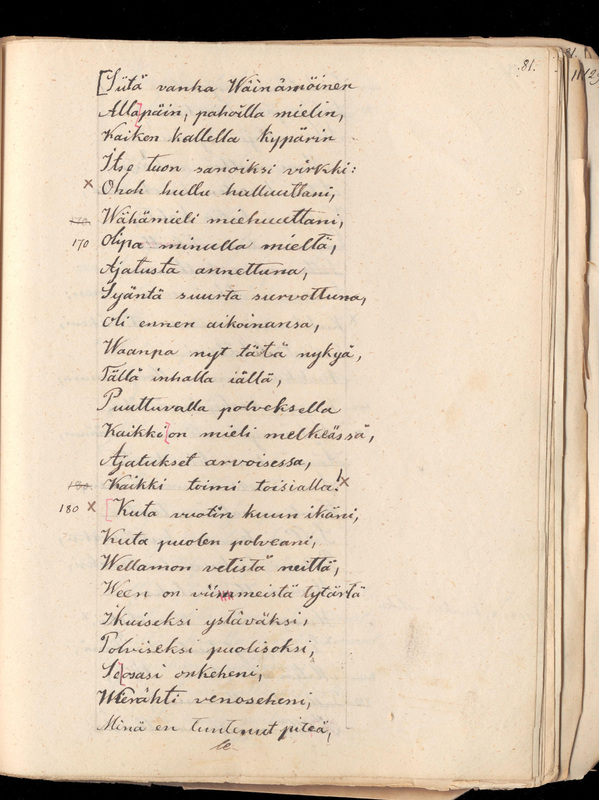 81.
[Siitä vanka Wäinämöinen
Alla]päin, pahoilla mielin,
Kaiken kallella kypärin
Itse tuon sanoiksi virkki:
x Ohoh hullu hulluuttani,
Wähämieli miehuuttani,
170 Olipa minulla mieltä,
Ajatusta annettuna,
Syäntä suurta survottuna,
Oli ennen aikoinansa,
Waanpa nyt tätä nykyä,
Tällä inhalla iällä,
Puuttuvalla polveksella
Kaikki]on mieli melkeässä,
Ajatukset arvoisessa,
180 Kaikki toimi toisialla! x
180 x [Kuta vuotin kuun ikäni,
Kuta puolen polveani,
Wellamon vetistä neittä,
Ween on viimmeistä tytärtä
Ikuiseksi ystäväksi,
Polviseksi puolisoksi,
Se]osasi onkeheni,
Wierähti venoseheni,
Minä en tuntenut piteä,